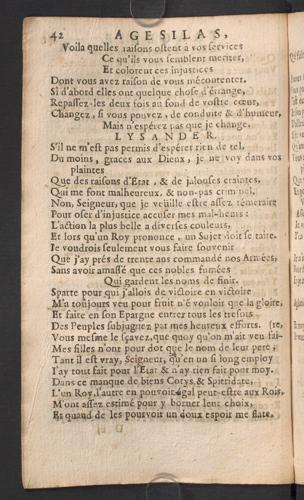 42 AGESILAS,
Voila quelles raisons ostent à vos services
Ce qu'ils vous semblent meriter,
Et colorent ces injustices
Dont vous avez raison de vous mécontenter.
Si d'abord elles ont quelque chose d'étrange,
Repassez-les deux fois au fond de vostre cœur,
Changez, si vous pouvez, de conduite & d'humeur,
Mais n'espérez pas que je change.
LYSANDER.
S'il ne m'est pas permis d'espérer rien de tel,
Du moins, graces aux Dieux, je ne voy dans vos
plaintes
Que des raisons d'Etat, & de jalouses craintes,
Qui me font malheureux, & non-pas criminel.
Non, Seigneur, que je veüille estre assez téméraire
Pour oser d'injustice accuser mes mal-heurs:
L'action la plus belle a diverses couleurs,
Et lors qu'un Roy prononce, un Sujet doit se taire.
Je voudrois seulement vous faire souvenir
Que j'ay prés de trente ans commandé nos Armées,
Sans avoir amassé que ces nobles fumées
Qui gardent les noms de finir.
Sparte pour qui j'allois de victoire en victoire
M'a toûjours veu pour fruit n'é vouloir que la gloire,
Et faire en son Epargne entrer tous les tresors
Des Peuples subjuguez par mes heureux efforts. (re,
Vous mesme le sçavez, que quoy qu'on m'ait veu fai-
Mes filles n'ont pour dot que le nom de leur pere,
Tant il est vray, Seigneur, qu'en un si long employ
J'ay tout fait pour l'Etat & n'ay rien fait pour moy.
Dans ce manque de biens Cotys & Spitridate,
L'un Roy, l'autre en pouvoir égal peut-estre aux Rois,
M'ont assez estimé pour y borner leur choix,
Et quand de les pourvoir un doux espoir me flate,